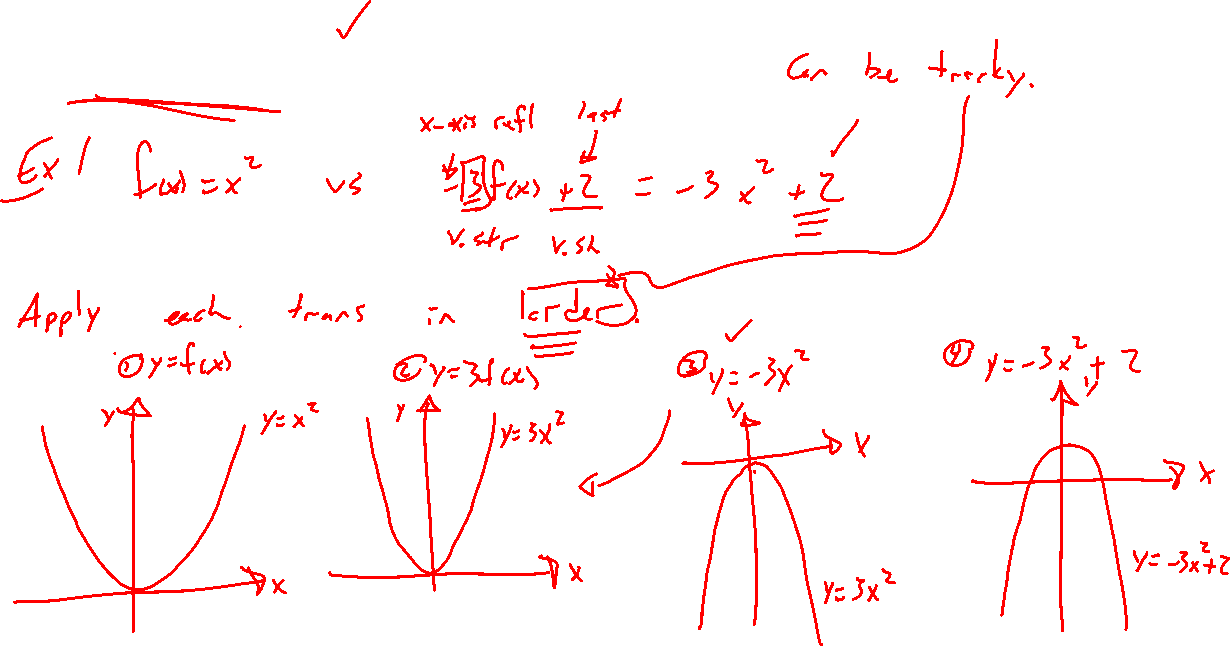 Can be tricky.
x-axis refl last
Ex 1 f(x) = x² vs -3f(x) +2 = -3x² + 2
v. str v. sh
Apply each trans in order.
① y=f(x) ② y=3f(x) ③ y=-3x² ④ y=-3x²+2
y y=x² y y=3x² y x y
x x y=3x² x y=-3x²+2